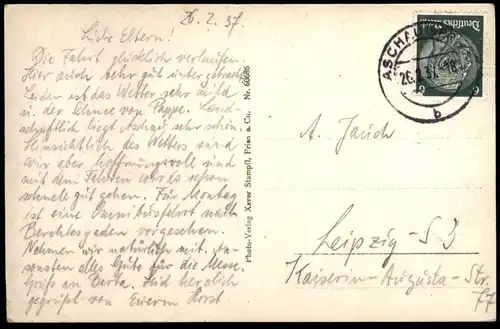 26.2.37.
Liebe Eltern!
Die Fahrt glücklich verlaufen.
Hier auch sehr gut untergebracht.
Leider ist das Wetter sehr mild
u. der Schnee von Pappe. Land-
schaftlich liegt Aschau sehr schön.
Hinsichtlich des Wetters sind
wir aber hoffnungsvoll und
mit dem Fahren wird es schon
schnell gut gehen. Für Montag
ist eine Omnibusfahrt nach
Berchtesgaden vorgesehen.
Nehmen wir natürlich mit. An-
sonsten alles Gute für die Messe.
Gruß an Berta. Seid herzlich
gegrüßt von Eurem Horst
Photo-Verlag Xaver Stampfl, Prien a. Ch. Nr. 60686
Deutsches Reich
6 6
ASCHAU
26.2.37.-18
b
A. Jauch
Leipzig-S 3
Kaiserin-Augusta-Str.
77